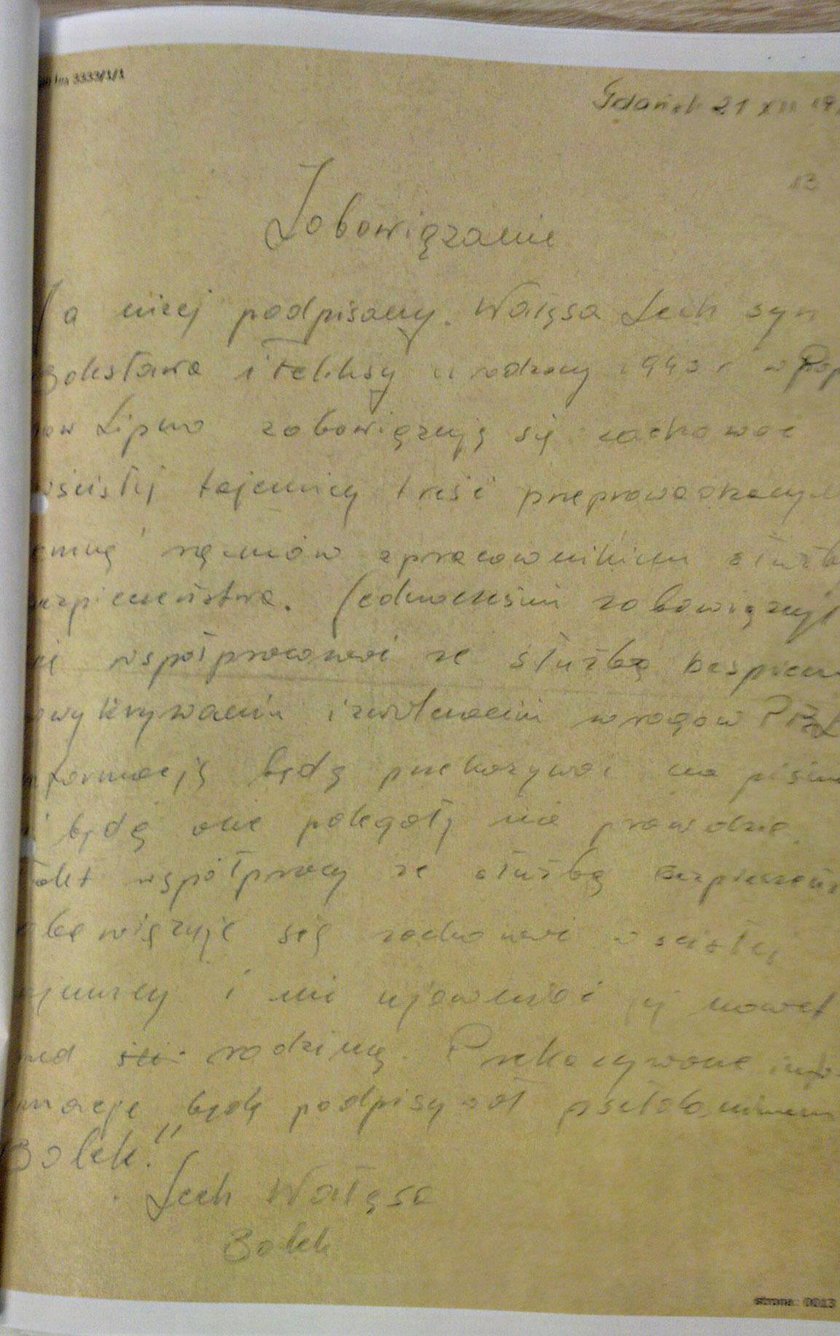 3333/1/1
Gdańsk 21 XII 19
13
Zobowiązanie
Ja niżej podpisany. Wałęsa Lech syn
Bolesława i Feliksy urodzony 1943 r w Pop
Lipno zobowiązują się zachować
wścisłej tajemnicy treść
emną rozmów zpracownikiem służb
ezpieczeństwa. Jednocześnie
ię współpracować ze służbą bespiecz
wykrywaniu izwalczaniu wrogów PRL
nformacją będą na piśmie
będą one polegały na prawdzie.
akt współpracy ze służbą Bezpieczeńs
się zachować wścisłej
ajemnicy i nie ujawniać jej nawet
rodziną. Przekazywane info-
macje będę podpisywał
Bolek."
Lech Wałęsa
Bolek
strona: 0013